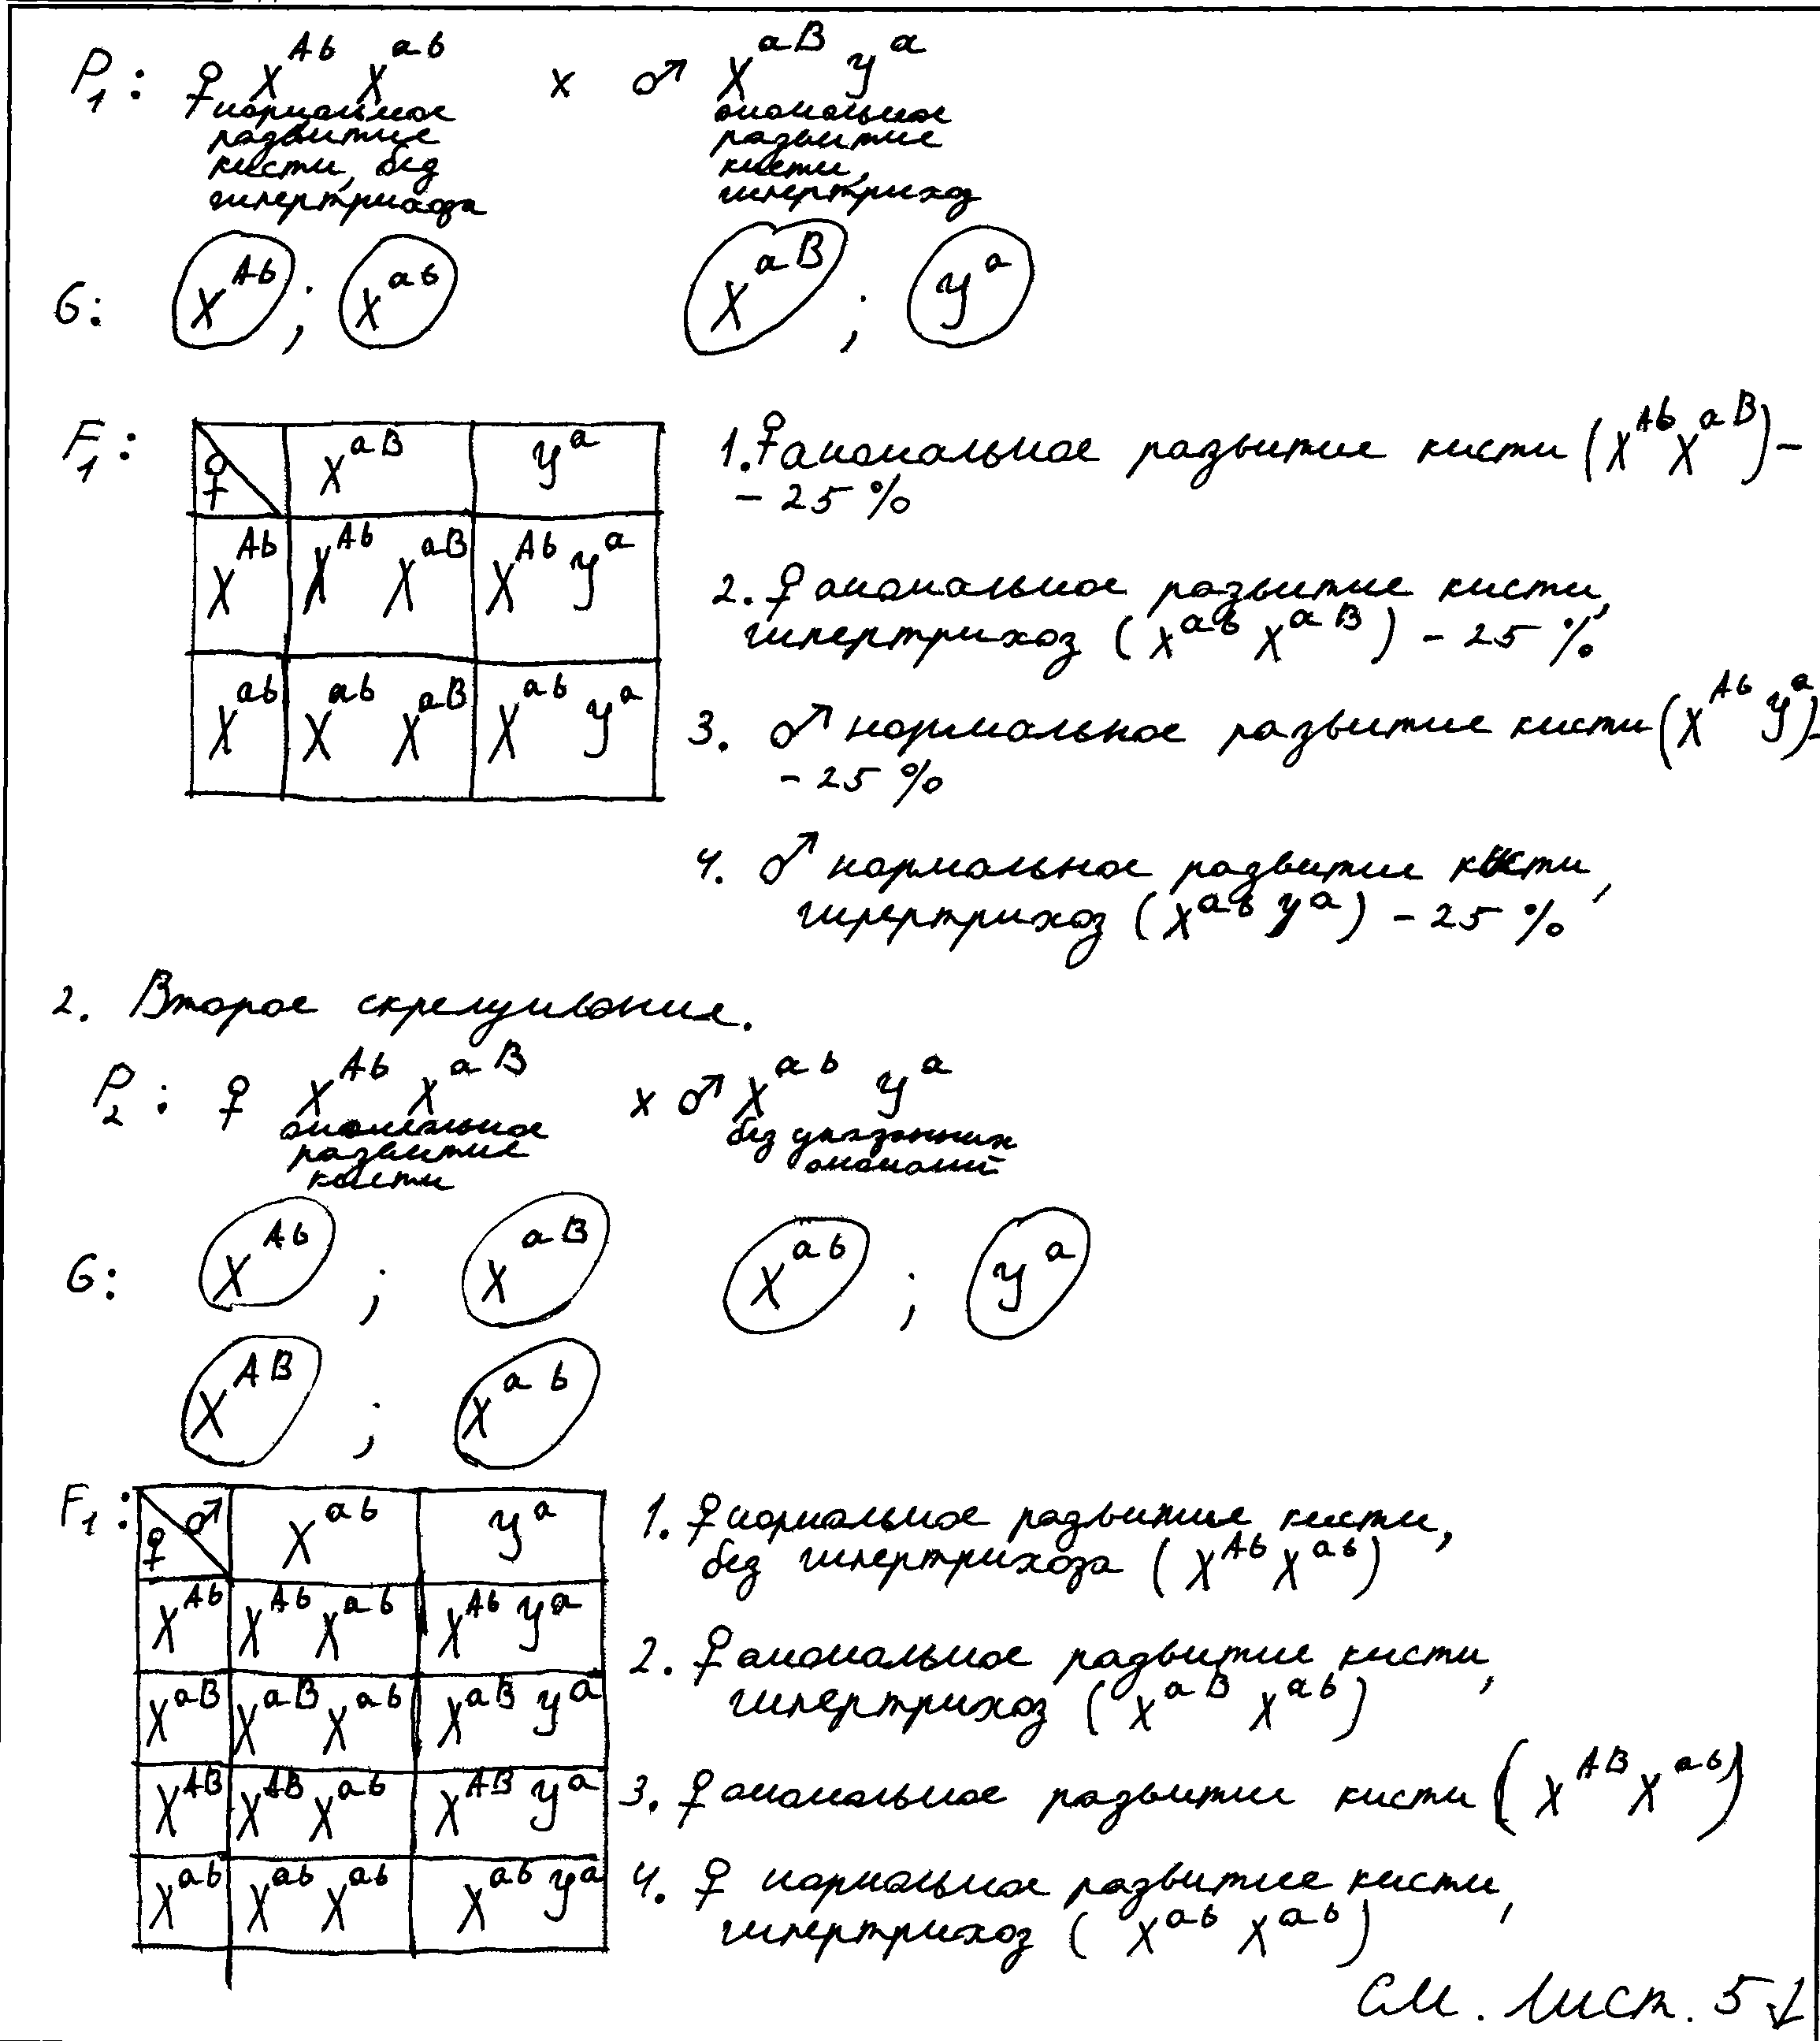 P₁: ♀ X^Аb X^аb × ♂ X^аB Y^а
нормальное развитие кисти, без гипертрихоза
аномальное развитие кисти, гипертрихоз
G: X^Аb ; X^аb X^аB ; Y^а
F₁:
♀ X^аB Y^а
X^Аb X^Аb X^аB X^Аb Y^а
X^аb X^аb X^аB X^аb Y^а
1. ♀ аномальное развитие кисти (X^Аb X^аB) –
– 25 %
2. ♀ аномальное развитие кисти,
гипертрихоз (X^аb X^аB) – 25 %
3. ♂ нормальное развитие кисти (X^Аb Y^а) –
– 25 %
4. ♂ нормальное развитие кисти,
гипертрихоз (X^аb Y^а) – 25 %
2. Второе скрещивание.
P₂: ♀ X^Аb X^аB × ♂ X^аb Y^а
аномальное развитие кисти
без указанных аномалий
G: X^Аb ; X^аB X^аb ; Y^а
X^АB ; X^аb
F₁:
♀ ♂ X^аb Y^а
X^Аb X^Аb X^аb X^Аb Y^а
X^аB X^аB X^аb X^аB Y^а
X^АB X^АB X^аb X^АB Y^а
X^аb X^аb X^аb X^аb Y^а
1. ♀ нормальное развитие кисти,
без гипертрихоза (X^Аb X^аb)
2. ♀ аномальное развитие кисти,
гипертрихоз (X^аB X^аb)
3. ♀ аномальное развитие кисти (X^АB X^аb)
4. ♀ нормальное развитие кисти,
гипертрихоз (X^аb X^аb)
См. лист. 5 ↓